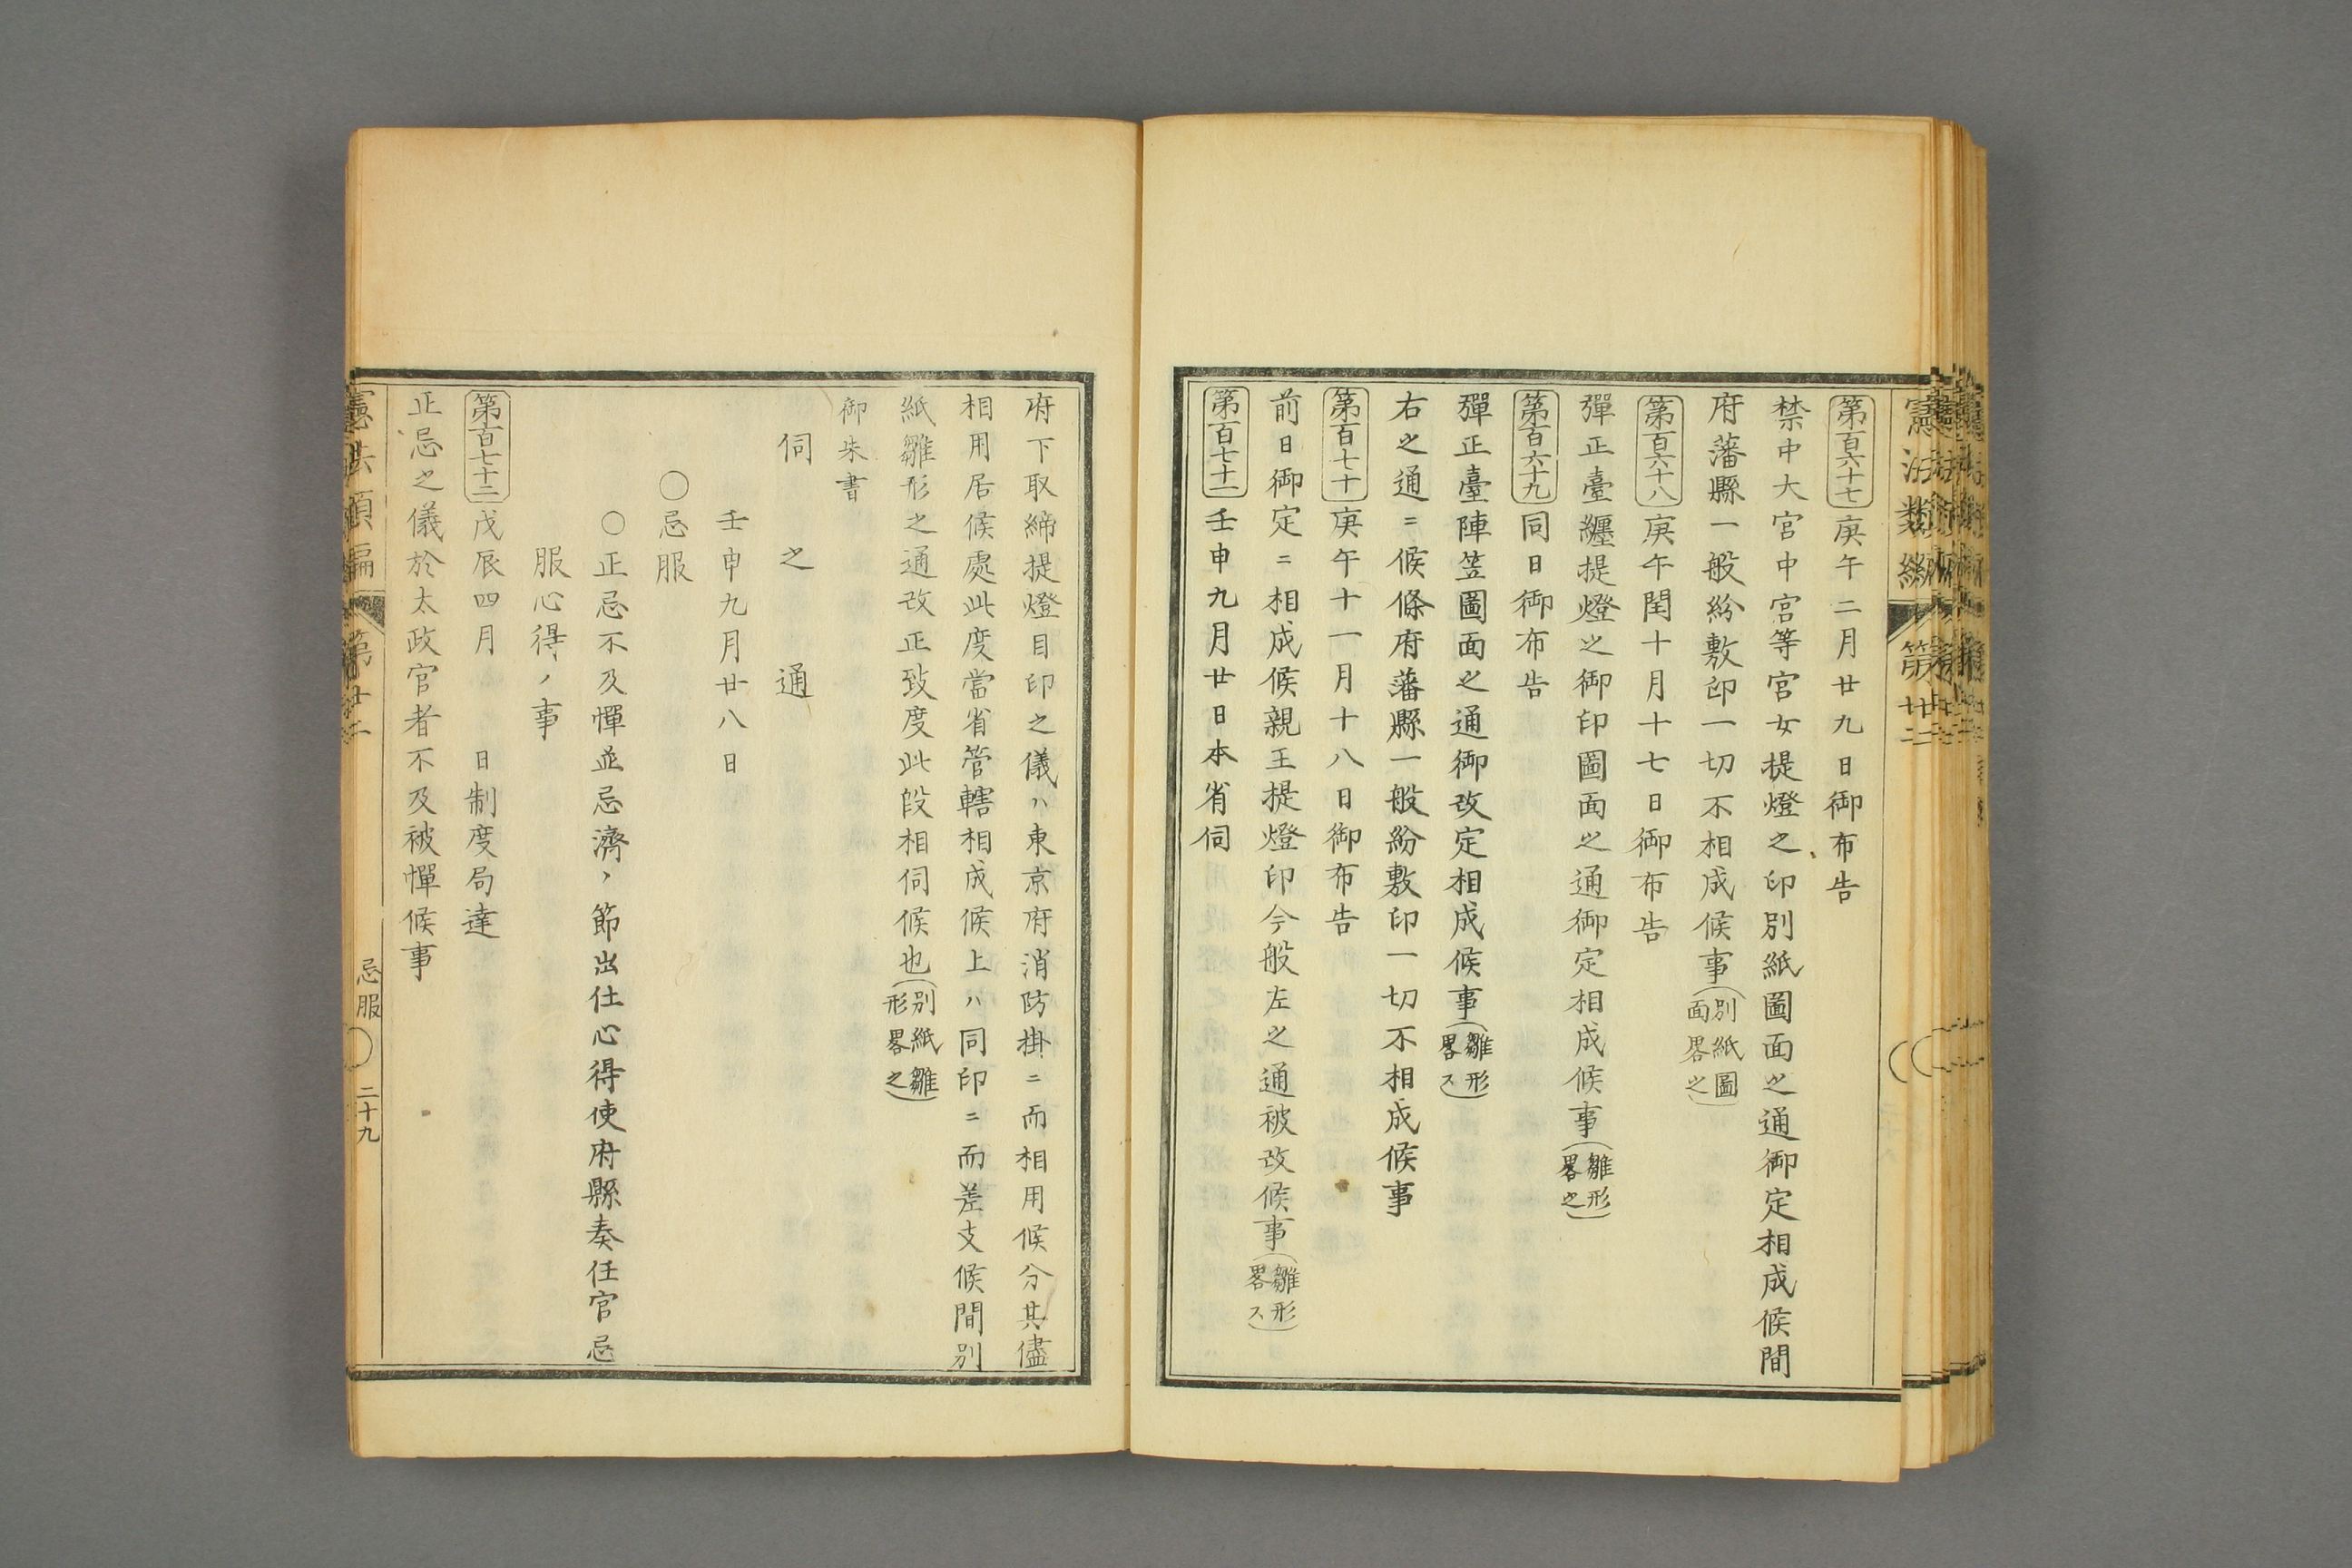 憲法類編
第廿二
第百六十七 庚午二月廿九日御布告
禁中大宮中宮等宮女提燈之印別紙圖面之通御定相成候間
府藩縣一般紛敷印一切不相成候事(別紙圖面畧之)
第百六十八 庚午閏十月十七日御布告
彈正臺纏提燈之御印圖面之通御定相成候事(雛形畧之)
第百六十九 同日御布告
彈正臺陣笠圖面之通御改定相成候事(雛形畧ス)
右之通ニ候條府藩縣一般紛敷印一切不相成候事
第百七十 庚午十一月十八日御布告
前日御定ニ相成候親王提燈印今般左之通被改候事(雛形畧ス)
第百七十一 壬申九月廿日本省伺
府下取締提燈目印之儀ハ東京府消防掛ニ而相用候分其儘
相用居候處此度當省管轄相成候上ハ同印ニ而差支候間別
紙雛形之通改正致度此段相伺候也(別紙雛形畧之)
御朱書
伺之通
壬申九月廿八日
〇忌服
〇正忌不及憚並忌濟ノ節出仕心得使府縣奏任官忌
服心得ノ事
第百七十二 戊辰四月 日制度局達
正忌之儀於太政官者不及被憚候事
憲法類編
第廿二
忌服
二十九